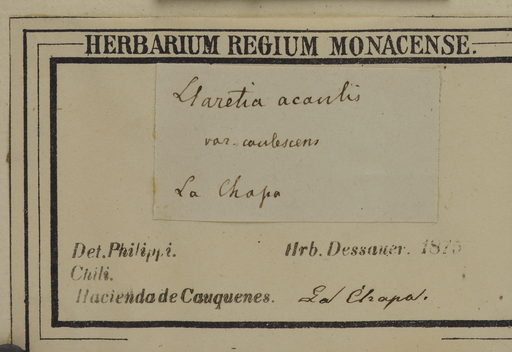 HERBARIUM REGIUM MONACENSE.
Llaretia acaulis
var. caulescens
La Chapa
Det. Philippi.
Hrb. Dessauer. 1875
Chili.
Hacienda de Cauquenes. La Chapa.